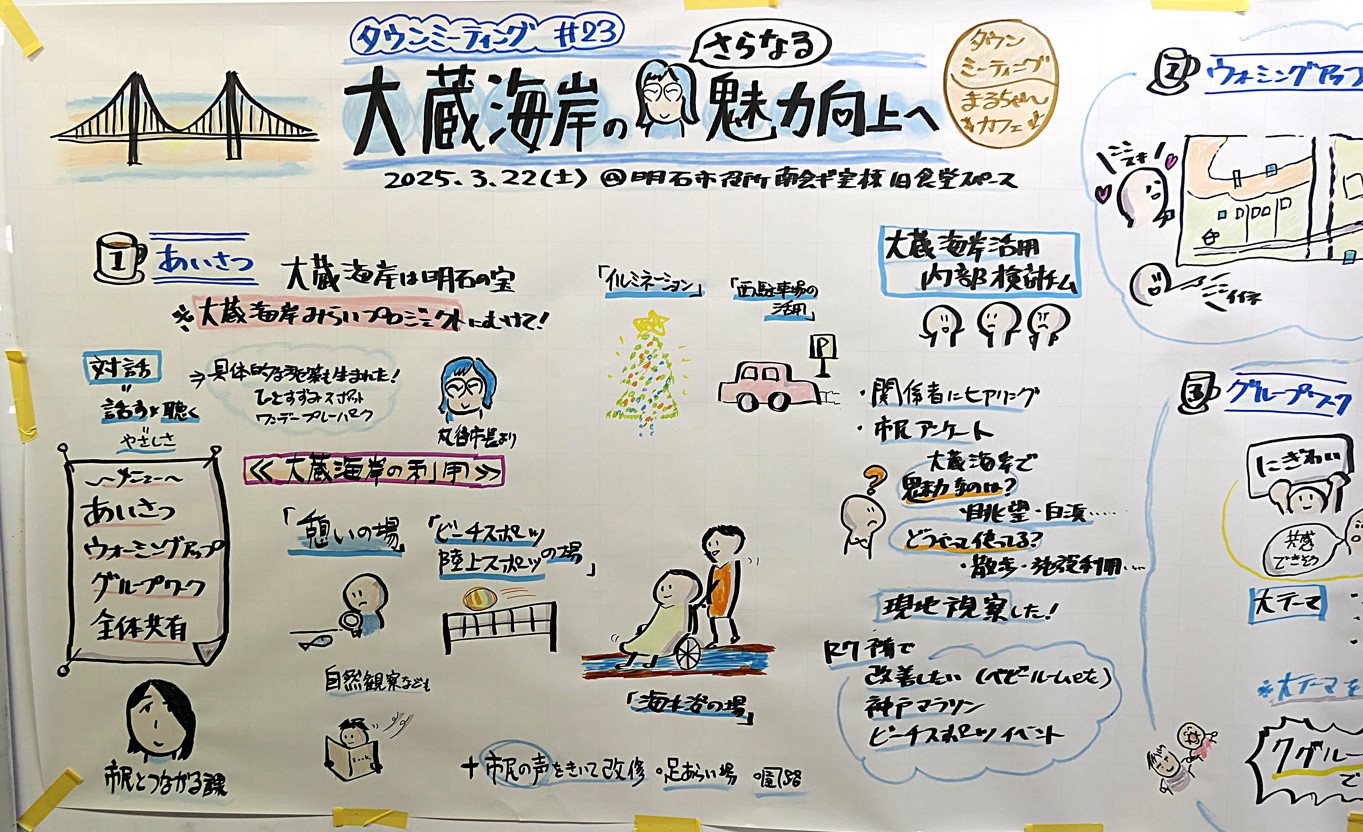 タウンミーティング #23
さらなる
大蔵海岸の魅力向上へ
タウン
ミーティング
まるちゃん
カフェ
2025.3.22(土) @明石市役所南会議室棟旧食堂スペース
1 あいさつ
大蔵海岸は明石の宝
※大蔵海岸みらいプロジェクトにむけて!
対話
"
話すと聴く
"
やさしさ
⇒具体的な施策も生まれた!
ひとすずみスポット
ワンデープレーパーク
丸谷市長より
〜メニュー〜
あいさつ
ウォーミングアップ
グループワーク
全体共有
市民とつながる課
≪大蔵海岸の利用≫
「憩いの場」
「ビーチスポーツ
陸上スポーツの場」
自然観察なども
BOOK
「イルミネーション」
「西駐車場の
活用」
P
「海水浴の場」
+市民の声をきいて改修 ・足あらい場 ・園路
大蔵海岸活用
内部検討チーム
・関係者にヒアリング
・市民アンケート
?
大蔵海岸で
魅力なのは?
・眺望・白浜……
どうやって使ってる?
・散歩・施設利用…
現地視察した!
改善したい(ベビールームetc)
神戸マラソン
ビーチスポーツイベント
2 ウォーミングアップ
ここ
スキ!
イイネ
3 グループワーク
にぎわい
共感
できそう
大テーマ
※大テーマを
7グルー
で